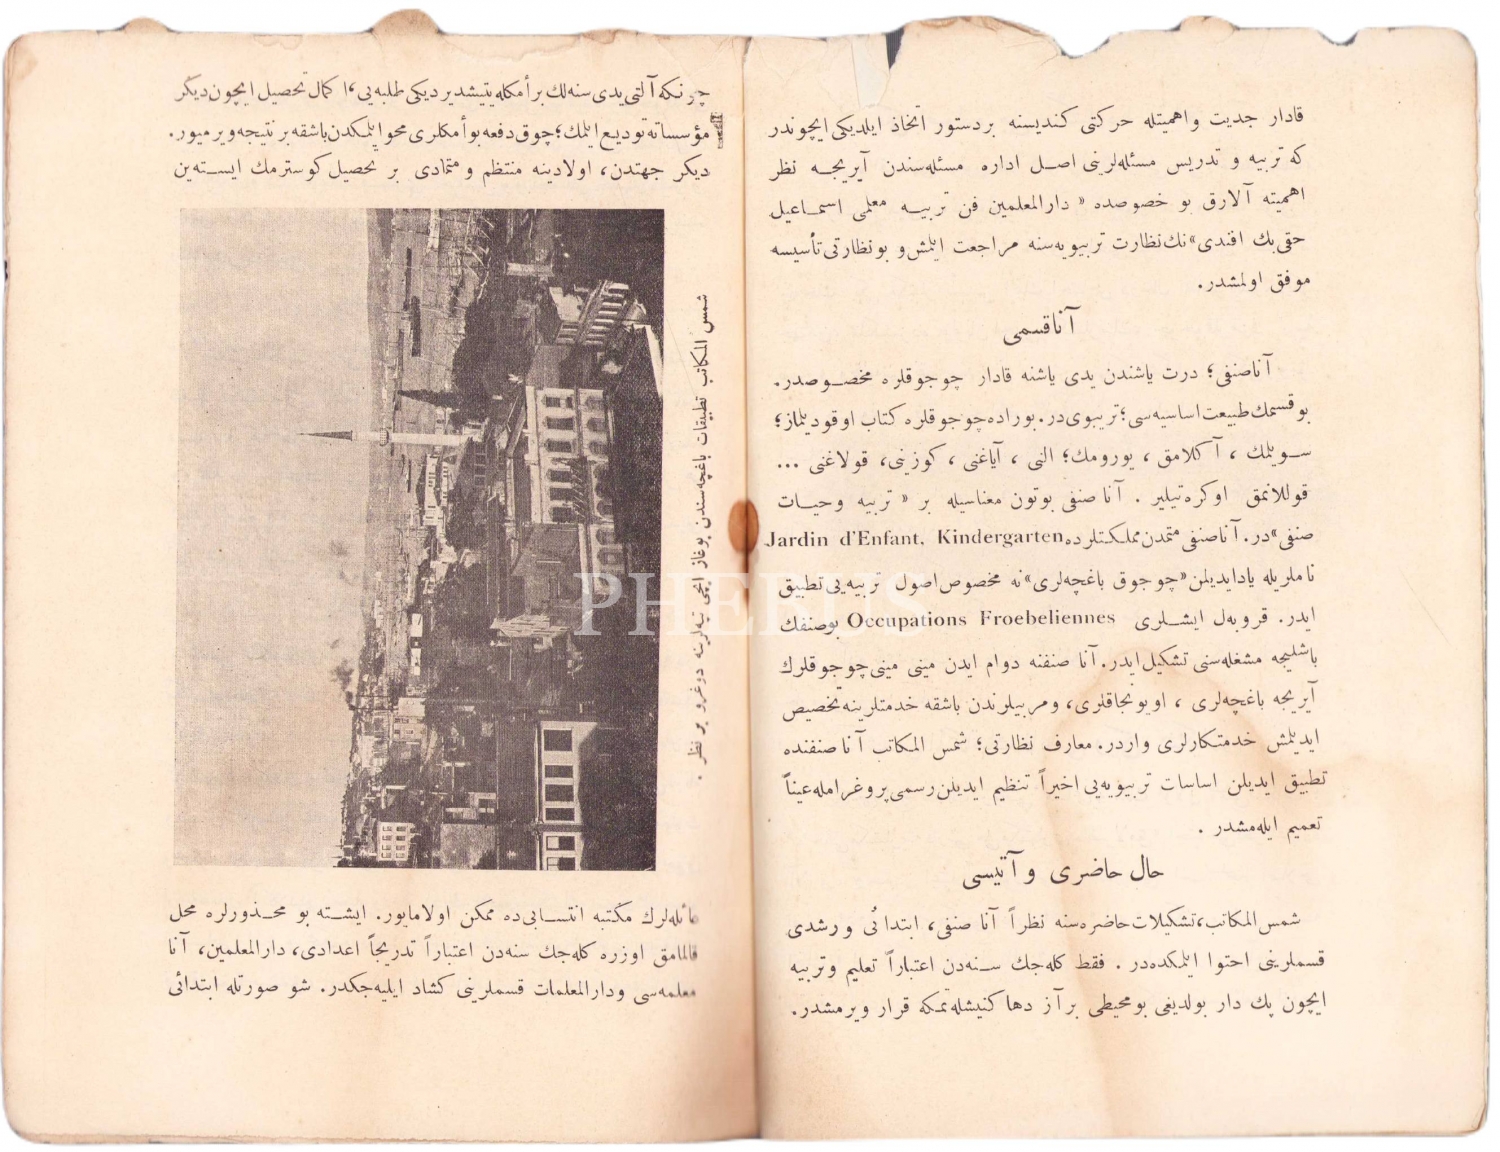 قادار جدیت واهمیتله حرکتی کندیسنه بردستور اتخاذ ایلدیکی ایچوندر
که تربیه و تدریس مسئله‌لرینی اصل اداره مسئله‌سندن آیریجه نظر
اهمیته آلارق بو خصوصده « دارالمعلمین فن تربیه معلمی اسماعیل
حقی بك افندی» نك نظارت تربیویه‌سنه مراجعت ایلمش و بونظارتی تأسیسه
موفق اولمشدر.
آناقسمی
آناصنفی؛ درت یاشندن یدی یاشنه قادار چوجوقلره مخصوصدر.
بوقسمك طبیعت اساسیه‌سی؛ تربیوی در. بوراده چوجوقلره کتاب اوقودیلماز؛
سویلمك ، آکلامق ، یورومك؛ النی ، آیاغنی ، کوزینی، قولاغنی ...
قوللانمق اوکره‌تیلیر . آنا صنفی بوتون معناسیله بر « تربیه وحیات
صنفی» در. آناصنفی متمدن مملکتلرده Jardin d'Enfant, Kindergarten
ناملریله یادایدیلن «چوجوق باغچه‌لری» نه مخصوص اصول تربیه‌یی تطبیق
ایدر. فروبه‌ل ایشلری Occupations Froebeliennes بوصنفك
باشلیجه مشغله‌سنی تشکیل ایدر. آنا صنفنه دوام ایدن مینی مینی چوجوقلرك
آیریجه باغچه‌لری ، اویونجاقلری، ومربیلرندن باشقه خدمتلرینه تخصیص
ایدیلمش خدمتکارلری واردر. معارف نظارتی؛ شمس المکاتب آنا صنفنده
تطبیق ایدیلن اساسات تربیویه‌یی اخیراً تنظیم ایدیلن رسمی پروغرامله عیناً
تعمیم ایله‌مشدر .
حال حاضری و آتیسی
شمس المکاتب، تشکیلات حاضره‌سنه نظراً آنا صنفی، ابتدائی و رشدی
قسملرینی احتوا ایلمکده‌در . فقط کله‌جك سنه‌دن اعتباراً تعلیم وتربیه
ایچون پك دار بولدیغی بومحیطی برآز دها کنیشله‌تمکه قرار ویرمشدر.
چونکه آلتی یدی سنه‌لك برأمکله یتیشدیردیکی طلبه‌یی، اکمال تحصیل ایچون دیکر
مؤسساته تودیع ایلمك؛ چوق دفعه بوأمکلری محوایلمکدن باشقه برنتیجه ویرمیور.
دیکر جهتدن، اولادینه منتظم و متمادی بر تحصیل کوسترمك ایسته‌ین
شمس المکاتب تطبیقات باغچه‌سندن بوغاز ایچی تپه‌لرینه دوغرو بر نظر .
عائله‌لرك مکتبه انتسابی‌ده ممکن اولامایور. ایشته بو محذورلره محل
قالمامق اوزره کله‌جك سنه‌دن اعتباراً تدریجاً اعدادی، دارالمعلمین، آنا
معلمه‌سی ودارالمعلمات قسملرینی کشاد ایلیه‌جکدر. شو صورتله ابتدائی
PHEBUS